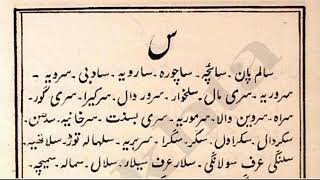 س
سالم پان ۔ سانچہ ۔ ساچورہ ۔ سارویہ ۔ سادبی ۔ سرویہ ۔
سروریہ ۔ سری مال ۔ سلخوار ۔ سرور دال ۔ سرکیرا ۔ سری گور ۔
سراہ ۔ سروبن والا ۔ سرموریہ ۔ سری بسنت ۔ سرخانیہ ۔
سکردال ۔ سکراول ۔ سکر ۔ سکرا ۔ سربریہ ۔ سلہالہ توڑ ۔
سلنگی عرف سولانگی ۔ سلارعرف سیلار ۔ سلال ۔ سمالہ ۔ سمیچہ ۔